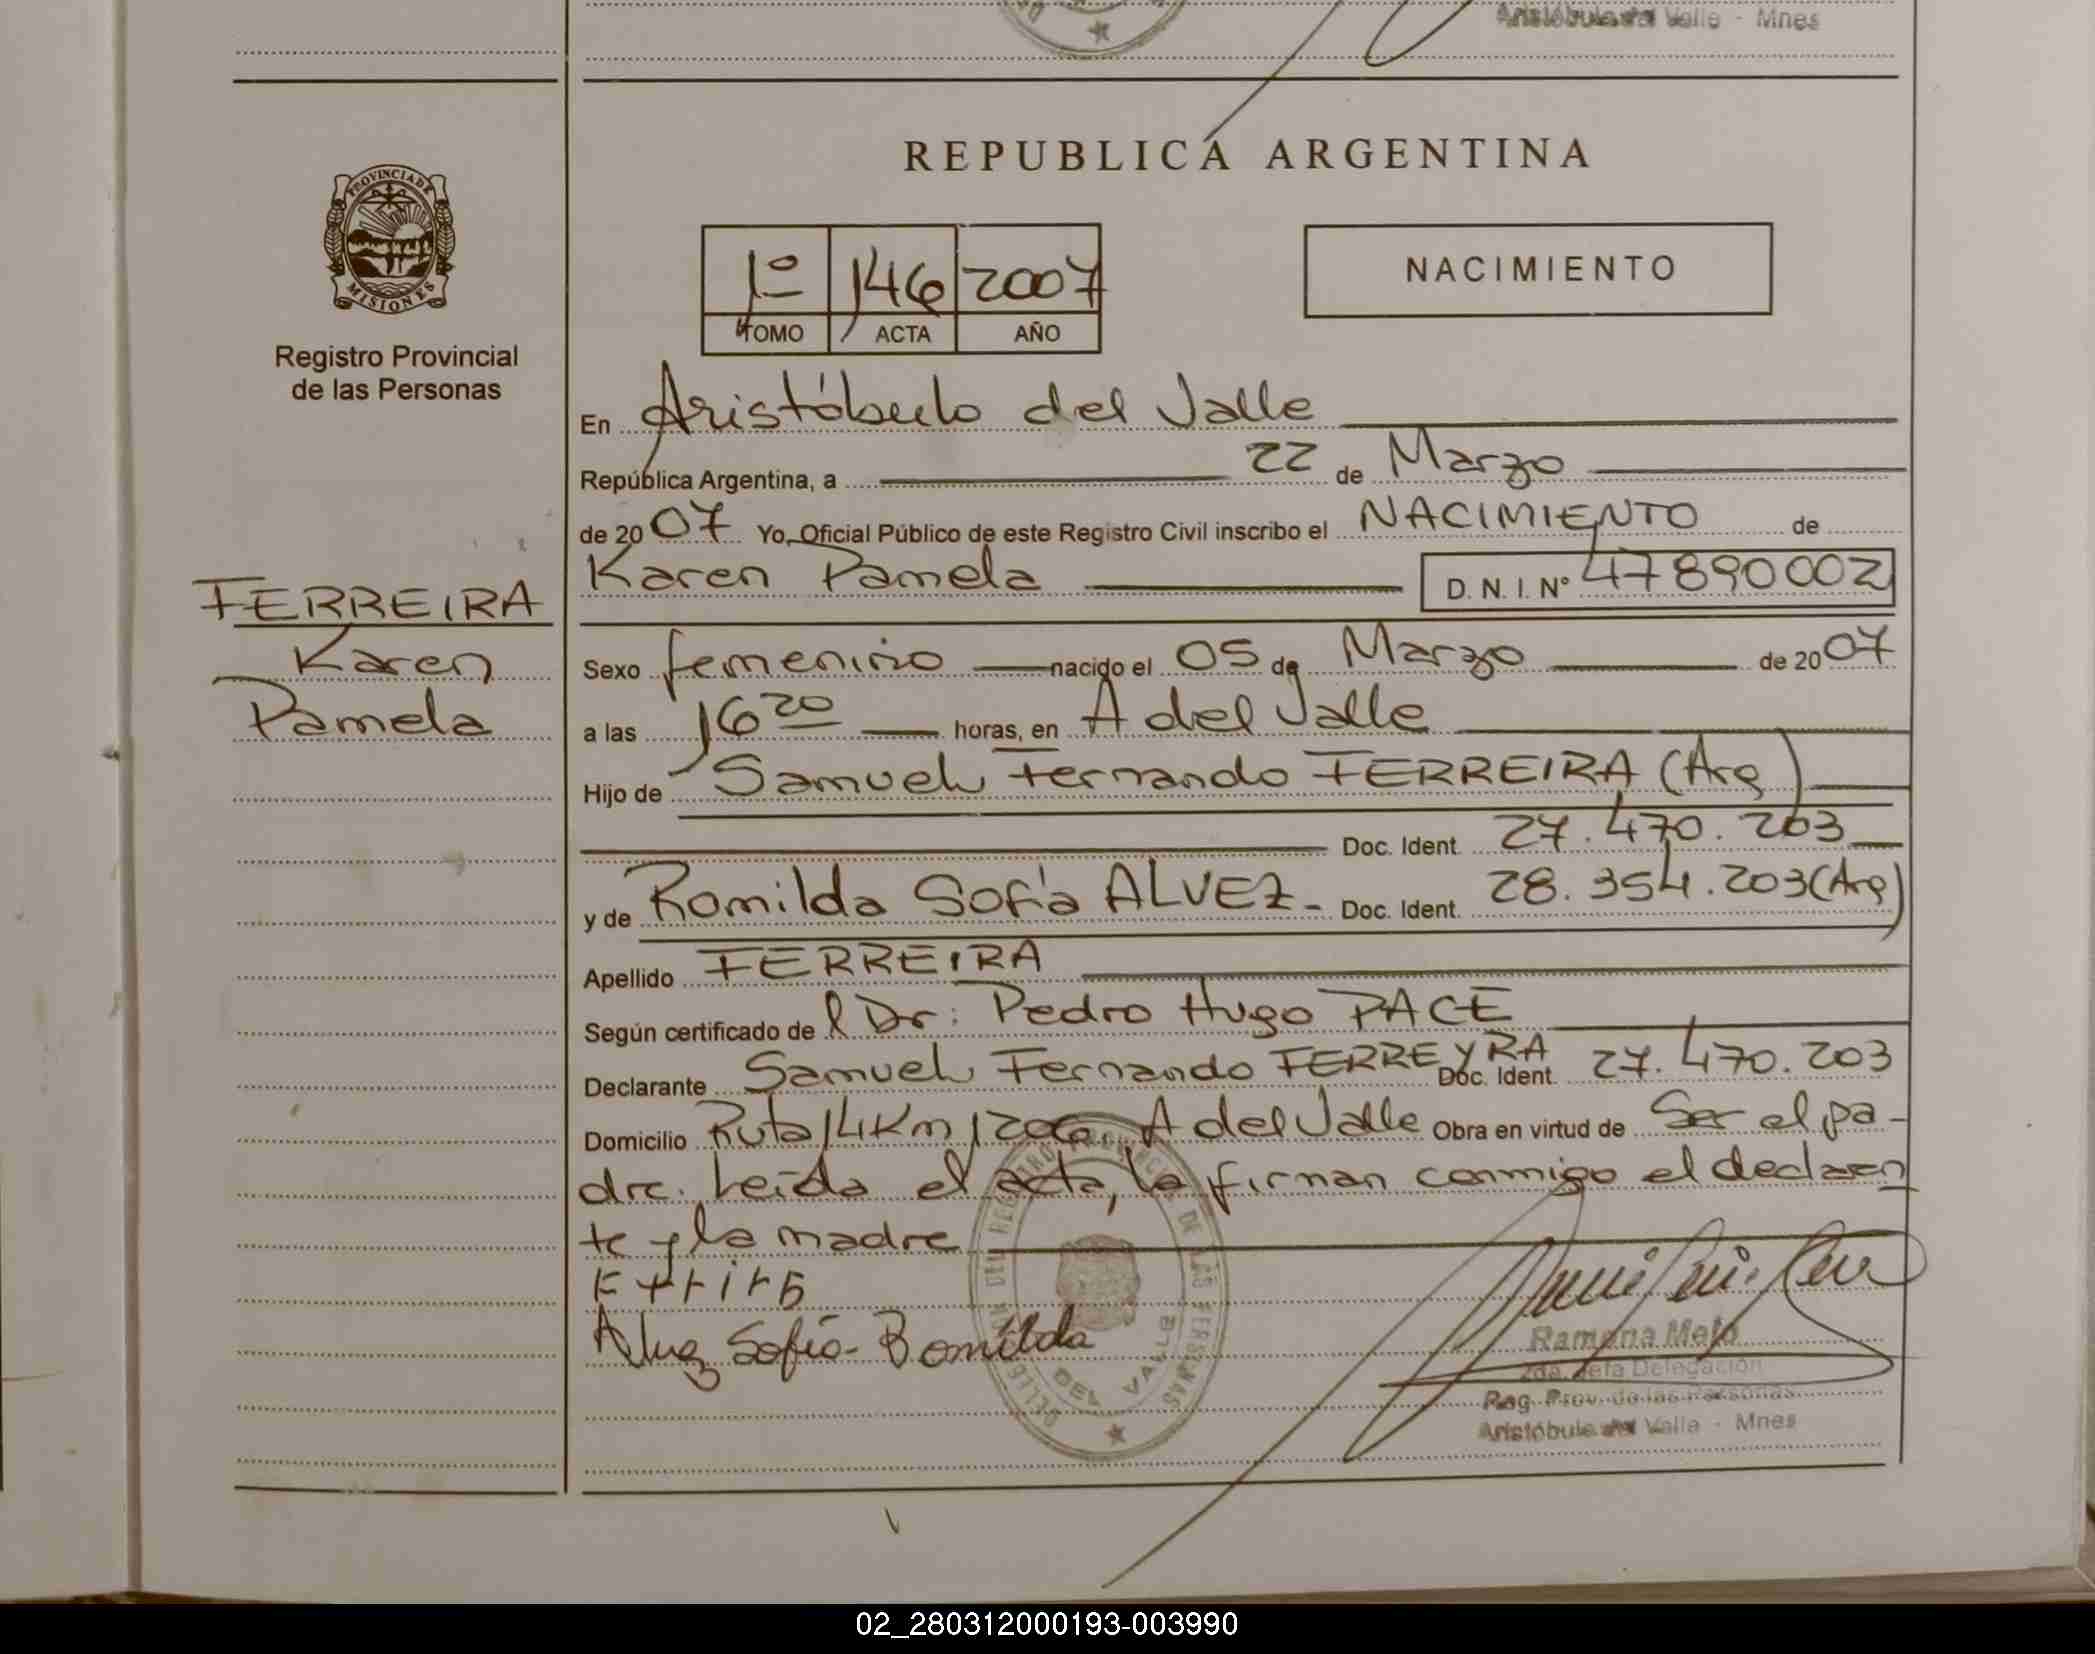 Aristóbulo del Valle - Mnes
REPUBLICA ARGENTINA
PROVINCIA DE
MISIONES
Registro Provincial
de las Personas
1º 146 2007
TOMO ACTA AÑO
NACIMIENTO
En Aristóbulo del Valle
República Argentina, a 22 de Marzo
de 2007 Yo, Oficial Público de este Registro Civil inscribo el NACIMIENTO de
Karen Pamela D. N. I. Nº 47890002
FERREIRA
Karen
Pamela
Sexo femenino nacido el 05 de Marzo de 2007
a las 16 20 horas, en A del Valle
Hijo de Samuel Fernando FERREIRA (Arg)
Doc. Ident. 27.470.203
y de Romilda Sofía ALVEZ - Doc. Ident. 28.354.203 (Arg)
Apellido FERREIRA
Según certificado de l Dr: Pedro Hugo PACE
Declarante Samuel Fernando FERREYRA Doc. Ident. 27.470.203
Domicilio Ruta 14 Km 1206, A del Valle Obra en virtud de Ser el pa-
dre. Leída el acta, la firman conmigo el declaran
te y la madre
Alvez Sofía Romilda
DEL VALLE
Ramona Melo
2da. Jefa Delegación
Reg. Prov. de las Personas
Aristóbulo del Valle - Mnes
02_280312000193-003990